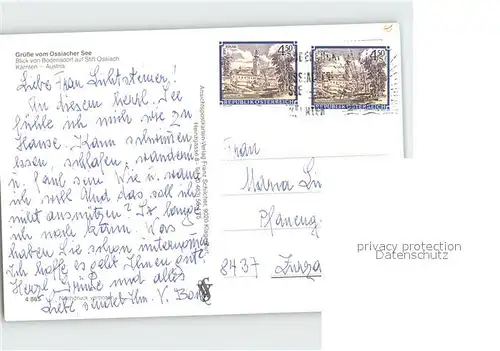 Grüße vom Ossiacher See
Blick von Bodensdorf auf Stift Ossiach
Kärnten — Austria
Liebe Frau Lichtsteiner!
An diesem herrl. See
fühle ich mich wie zu
Hause. Kann schwimmen
essen, schlafen, wandern
u. faul sein. Wie u. wann
ich will. Und das soll ich
nicht ausnützen? So lange
ich noch kann. Was
haben Sie schon
ich hoffe es geht Ihnen gut.
Herzl. Grüsse und alles
Liebe, sendet Ihn. V.
4 865
Nachdruck verboten
Ansichtspostkarten-Verlag Franz Schilcher, 9020
4,50
REPUBLIK ÖSTERREICH
4,50
REPUBLIK ÖSTERREICH
Frau
Maria Li
8437 Zurza
privacy protection
Datenschutz